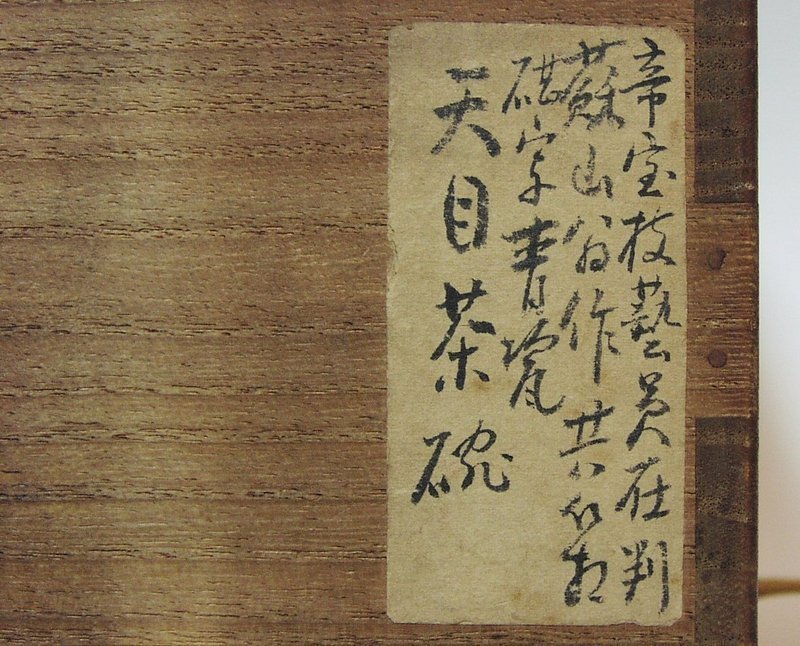 帝室技藝員在判
蘇山翁作共箱
碪字青瓷
天目茶碗